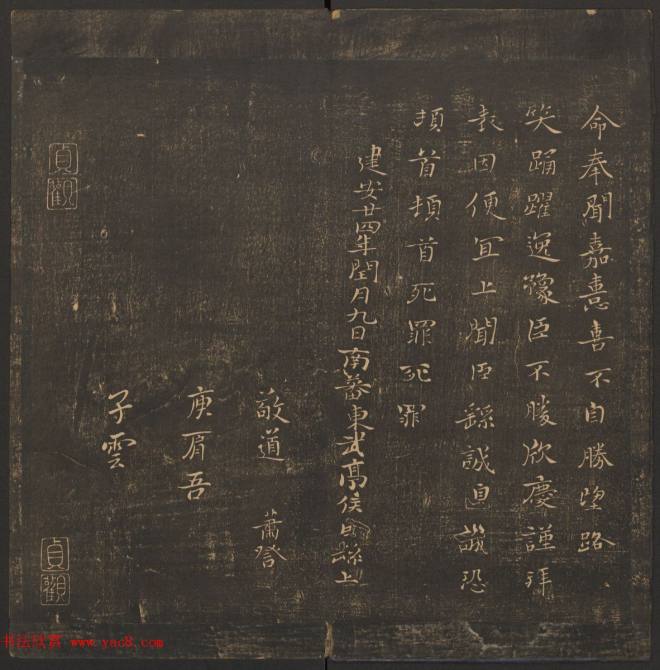 命奉聞嘉憙喜不自勝望路
笑踊躍逸豫臣不勝欣慶謹拜
表因便宜上聞臣繇誠惶誠恐
頓首頓首死罪死罪
建安廿四年閏月九日南蕃東武亭侯臣繇上
敬道 蕭登
庚肩吾
子雲
貞觀
貞觀
书法欣赏 www.yac8.com